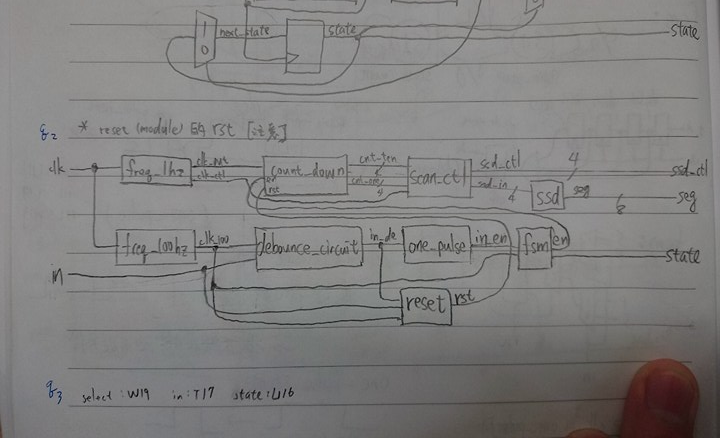 1
0
next_state
state
state
q2 * reset (module) 的 rst [注意]
clk
freq_1hz
clk_out
clk_ctl
en
rst
count_down
cnt_ten
cnt_one
4
scan_ctl
scd_ctl
4
ssd_ctl
ssd_in
4
ssd
seg
8
seg
freq_100hz
clk_100
debounce_circuit
in_de
one_pulse
in_en
fsm
en
state
in
reset
rst
q3 select : W19 in : T17 state : U16